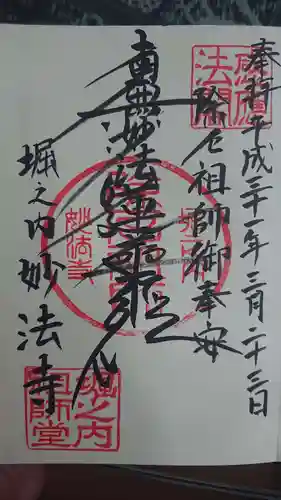 奉拝 平成三十一年三月二十三日
除厄祖師御奉安
南無妙法蓮華経
堀之内 妙法寺
妙法寺
堀之内
祖師堂